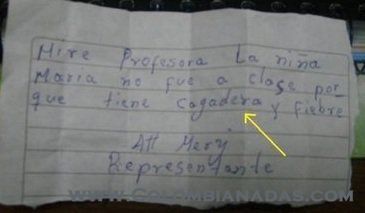 Mire Profesora La niña
Maria no fue a clase por
que tiene cagadera y fiebre
Att Mery
Representante
WWW.COLOMBIANADAS.COM